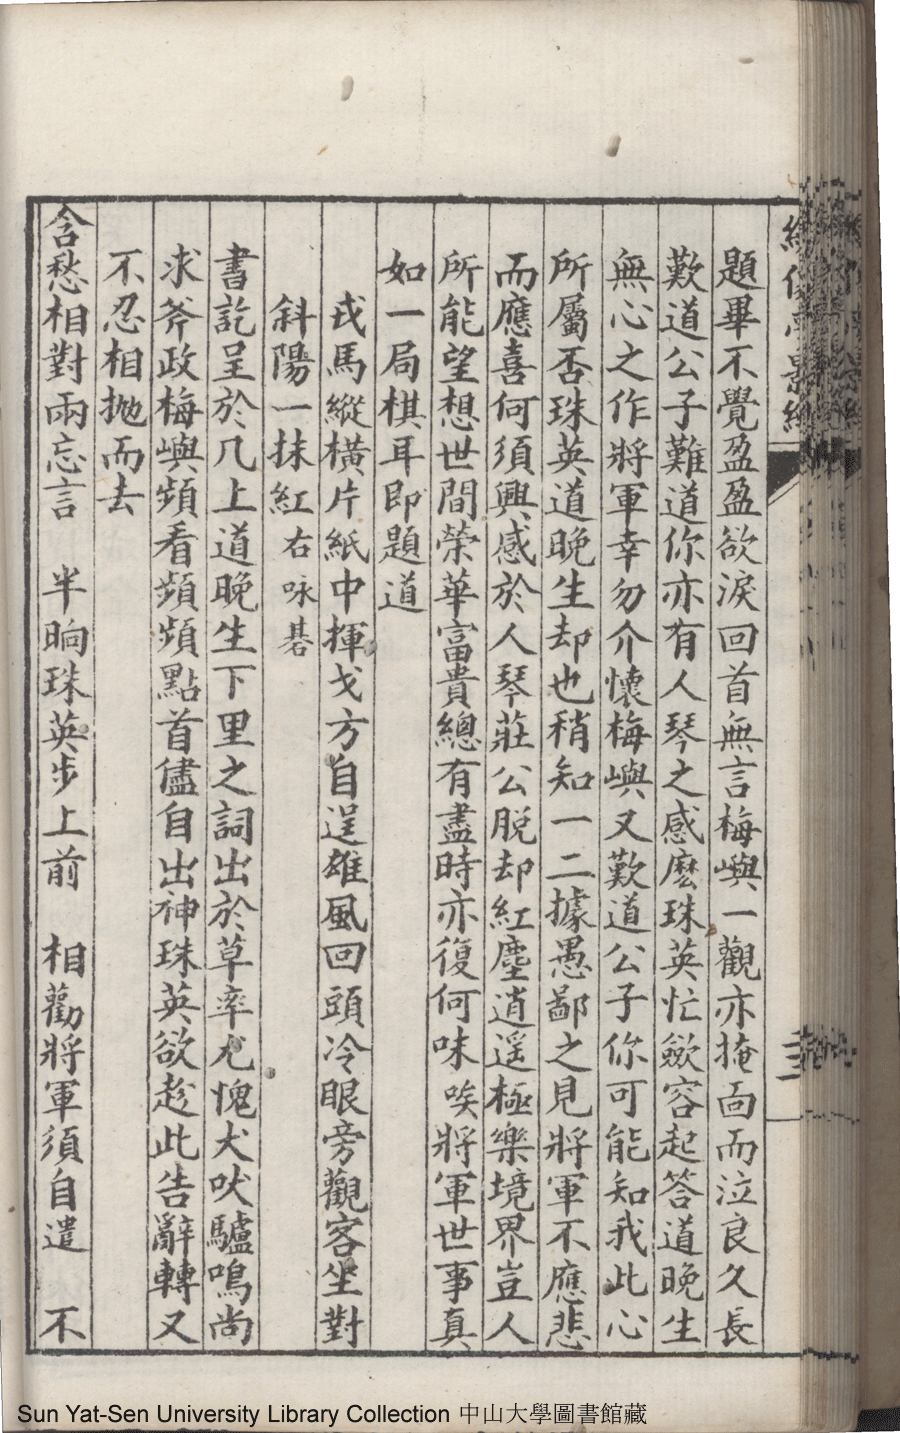 題畢不覺盈盈欲淚回首無言梅嶼一觀亦掩面而泣良久長
歎道公子難道你亦有人琴之感麽珠英忙歛容起答道晚生
無心之作將軍幸勿介懷梅嶼又歎道公子你可能知我此心
所屬否珠英道晚生却也稍知一二據愚鄙之見將軍不應悲
而應喜何須興感於人琴莊公脫却紅塵逍遥極樂境界豈人
所能望想世間榮華富貴總有盡時亦復何味唉將軍世事真
如一局棋耳即題道
戎馬縱橫片紙中揮戈方自逞雄風回頭冷眼旁觀客坐對
斜陽一抹紅右咏碁
書訖呈於几上道晚生下里之詞出於草率尤愧犬吠驢鳴尚
求斧政梅嶼頻看頻頻點首儘自出神珠英欲趁此告辭轉又
不忍相抛而去
含愁相對兩忘言 半晌珠英步上前 相勸將軍須自遣 不
Sun Yat-Sen University Library Collection 中山大學圖書館藏